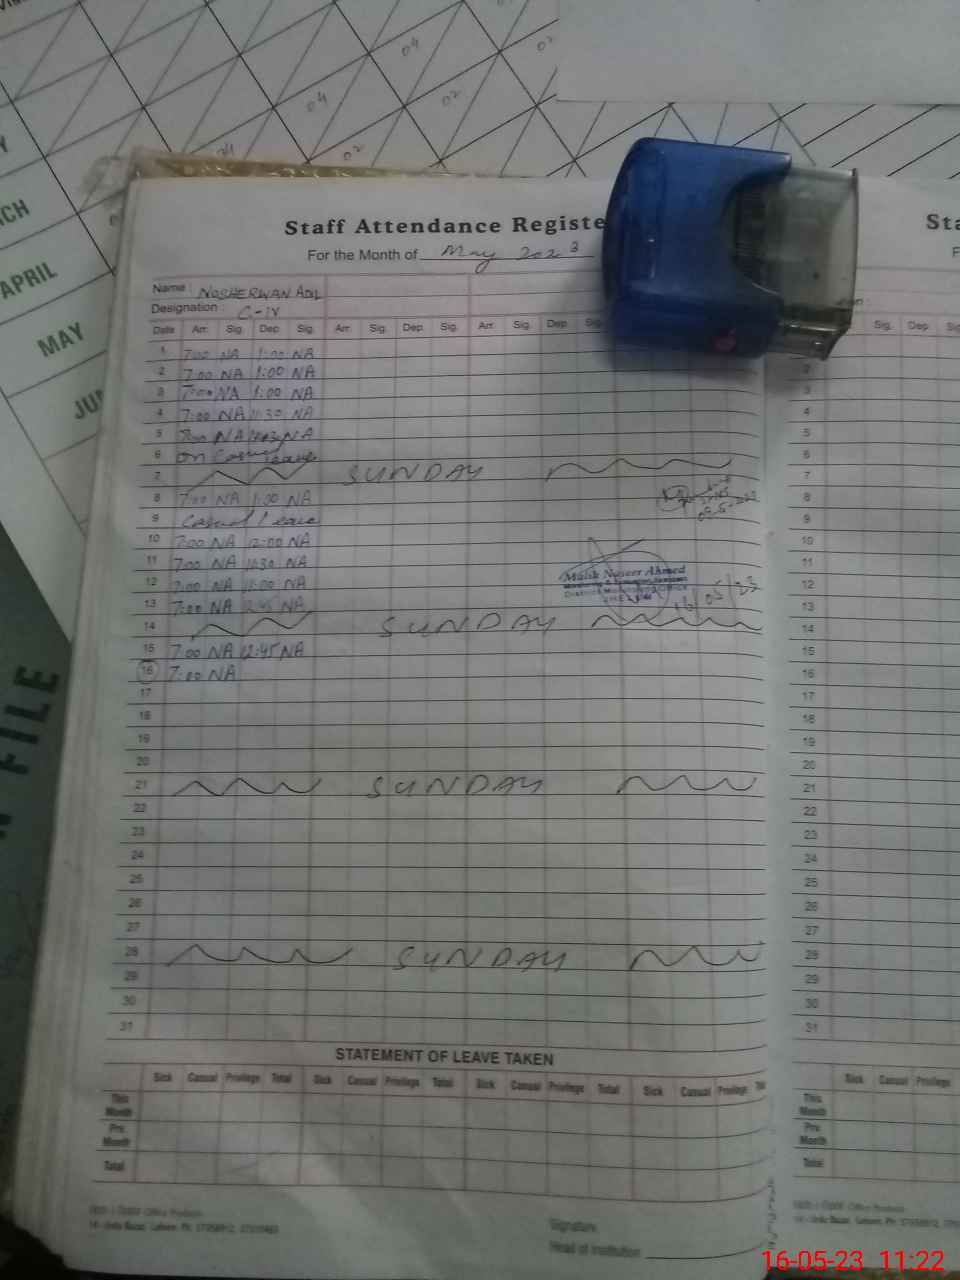 04
02
04
02
04
02
ARCH
APRIL
MAY
JUN
FILE
Staff Attendance Registe
Sta
For the Month of May 2023
F
Name : NOSHERWAN ADIL
Designation : C-IV
Date Arr. Sig. Dep. Sig. Arr. Sig. Dep. Sig. Arr. Sig. Dep. Sig.
Sig. Dep Sig.
1 7:00 NA 1:00 NA
2 7:00 NA 1:00 NA
3 7:00 NA 1:00 NA
4 7:00 NA 11:30 NA
5 NA NA
6 on Casual leave
7 SUNDAY
8 7:00 NA 1:00 NA
9 Casual leave
10 7:00 NA 12:00 NA
11 7:00 NA 11:30 NA
12 7:00 NA 11:00 NA
13 7:00 NA 12:45 NA
Malik Nayeer Ahmed
16/05/23
14 SUNDAY
15 7:00 NA 12:45 NA
16 7:00 NA
17
18
19
20
21 SUNDAY
22
23
24
25
26
27
28 SUNDAY
29
30
31
2
3
4
5
6
7
8
9
10
11
12
13
14
15
16
17
18
19
20
21
22
23
24
25
26
27
28
29
30
31
STATEMENT OF LEAVE TAKEN
Sick Casual Privilege Total Sick Casual Privilege Total Sick Casual Privilege Total Sick Casual Privilege
Sick Casual Privilege
This Month
Pre. Month
Total
This Month
Pre. Month
Total
Signature
Head of Institution
16-05-23 11:22